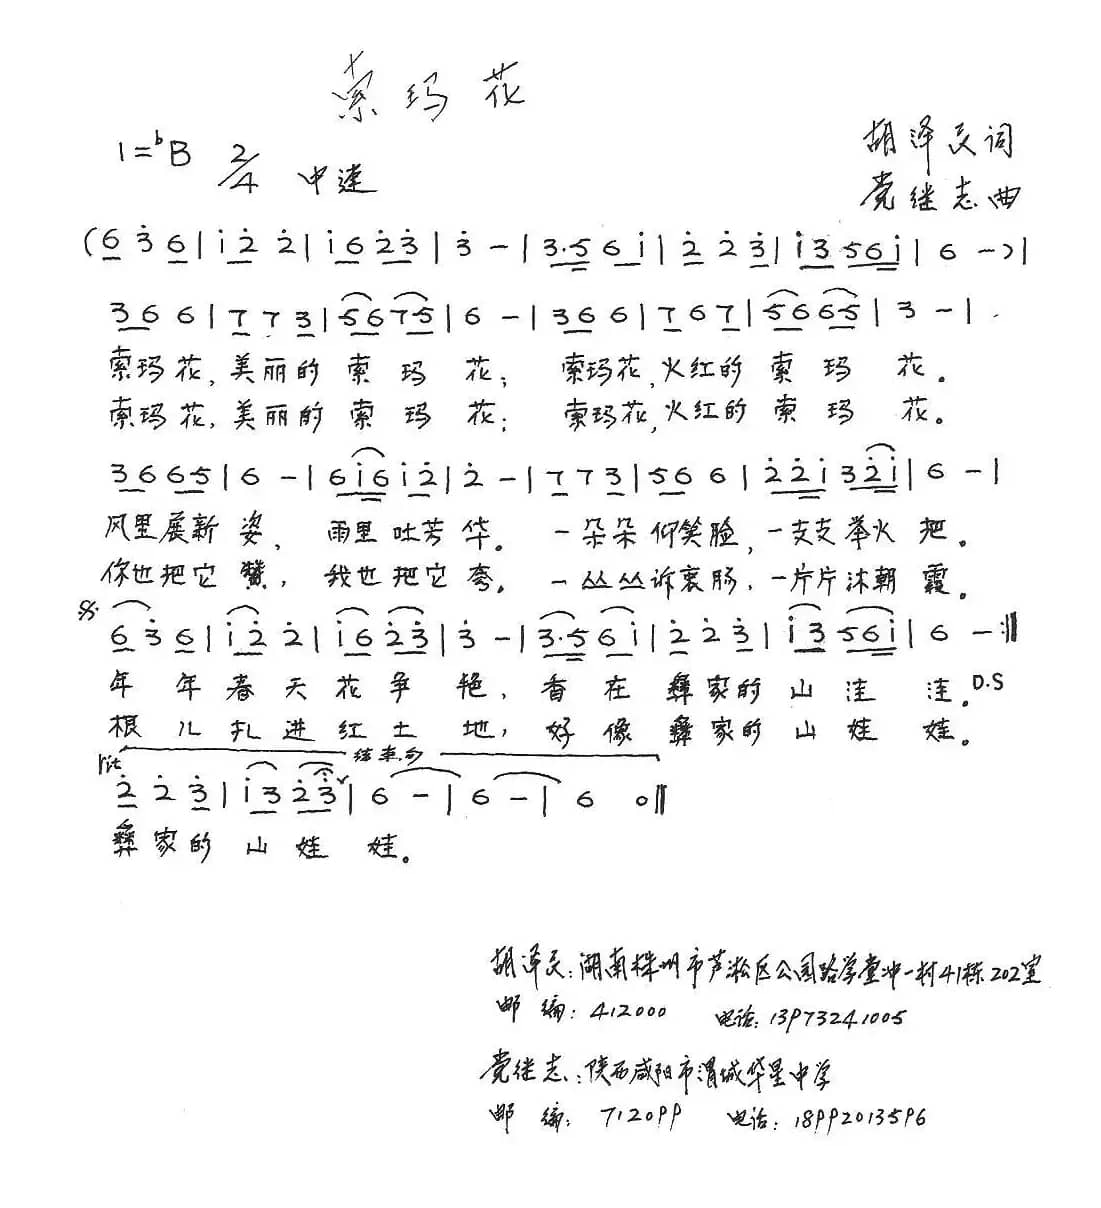 索玛花
1=♭B 2/4 中速
胡泽民词
党继志曲
(6 3̇ 6 | i 2̇ 2̇ | i 6 2̇ 3̇ | 3̇ - | 3̇·5 6 i | 2̇ 2̇ 3̇ | i 3̇ 5 6 i | 6 -) |
3 6 6 | 7 7 3 | 5 6 7 5 | 6 - | 3 6 6 | 7 6 7 | 5 6 6 5 | 3 - |
索玛花,美丽的 索 玛 花; 索玛花,火红的 索 玛 花。
索玛花,美丽的 索 玛 花; 索玛花,火红的 索 玛 花。
3 6 6 5 | 6 - | 6 i 6 i 2̇ | 2̇ - | 7 7 3 | 5 6 6 | 2̇ 2̇ i 3 2̇ i | 6 - |
风里展新 姿、 雨里吐芳 华。 一朵朵仰笑脸,一支支举火 把。
你也把它 赞, 我也把它 夸。 一丛丛诉衷肠,一片片沐朝 霞。
𝄋 6 3̇ 6 | i 2̇ 2̇ | i 6 2̇ 3̇ | 3̇ - | 3·5 6 i | 2̇ 2̇ 3̇ | i 3 5 6 i | 6 - :‖
年 年春天花争 艳,香在 彝家的山洼 洼。D.S
根 儿扎进红土 地,好像 彝家的山娃 娃。
rit 结束句
2̇ 2̇ 3̇ | i 3 2̇ 3̇ ˅ | 6 - | 6 - | 6 0 ‖
彝家的 山娃 娃。
胡泽民:湖南株州市芦淞区公园路学堂冲一村41栋202室
邮 编: 412000 电话:13973241005
党继志:陕西咸阳市渭城华星中学
邮 编: 712099 电话:18992013596